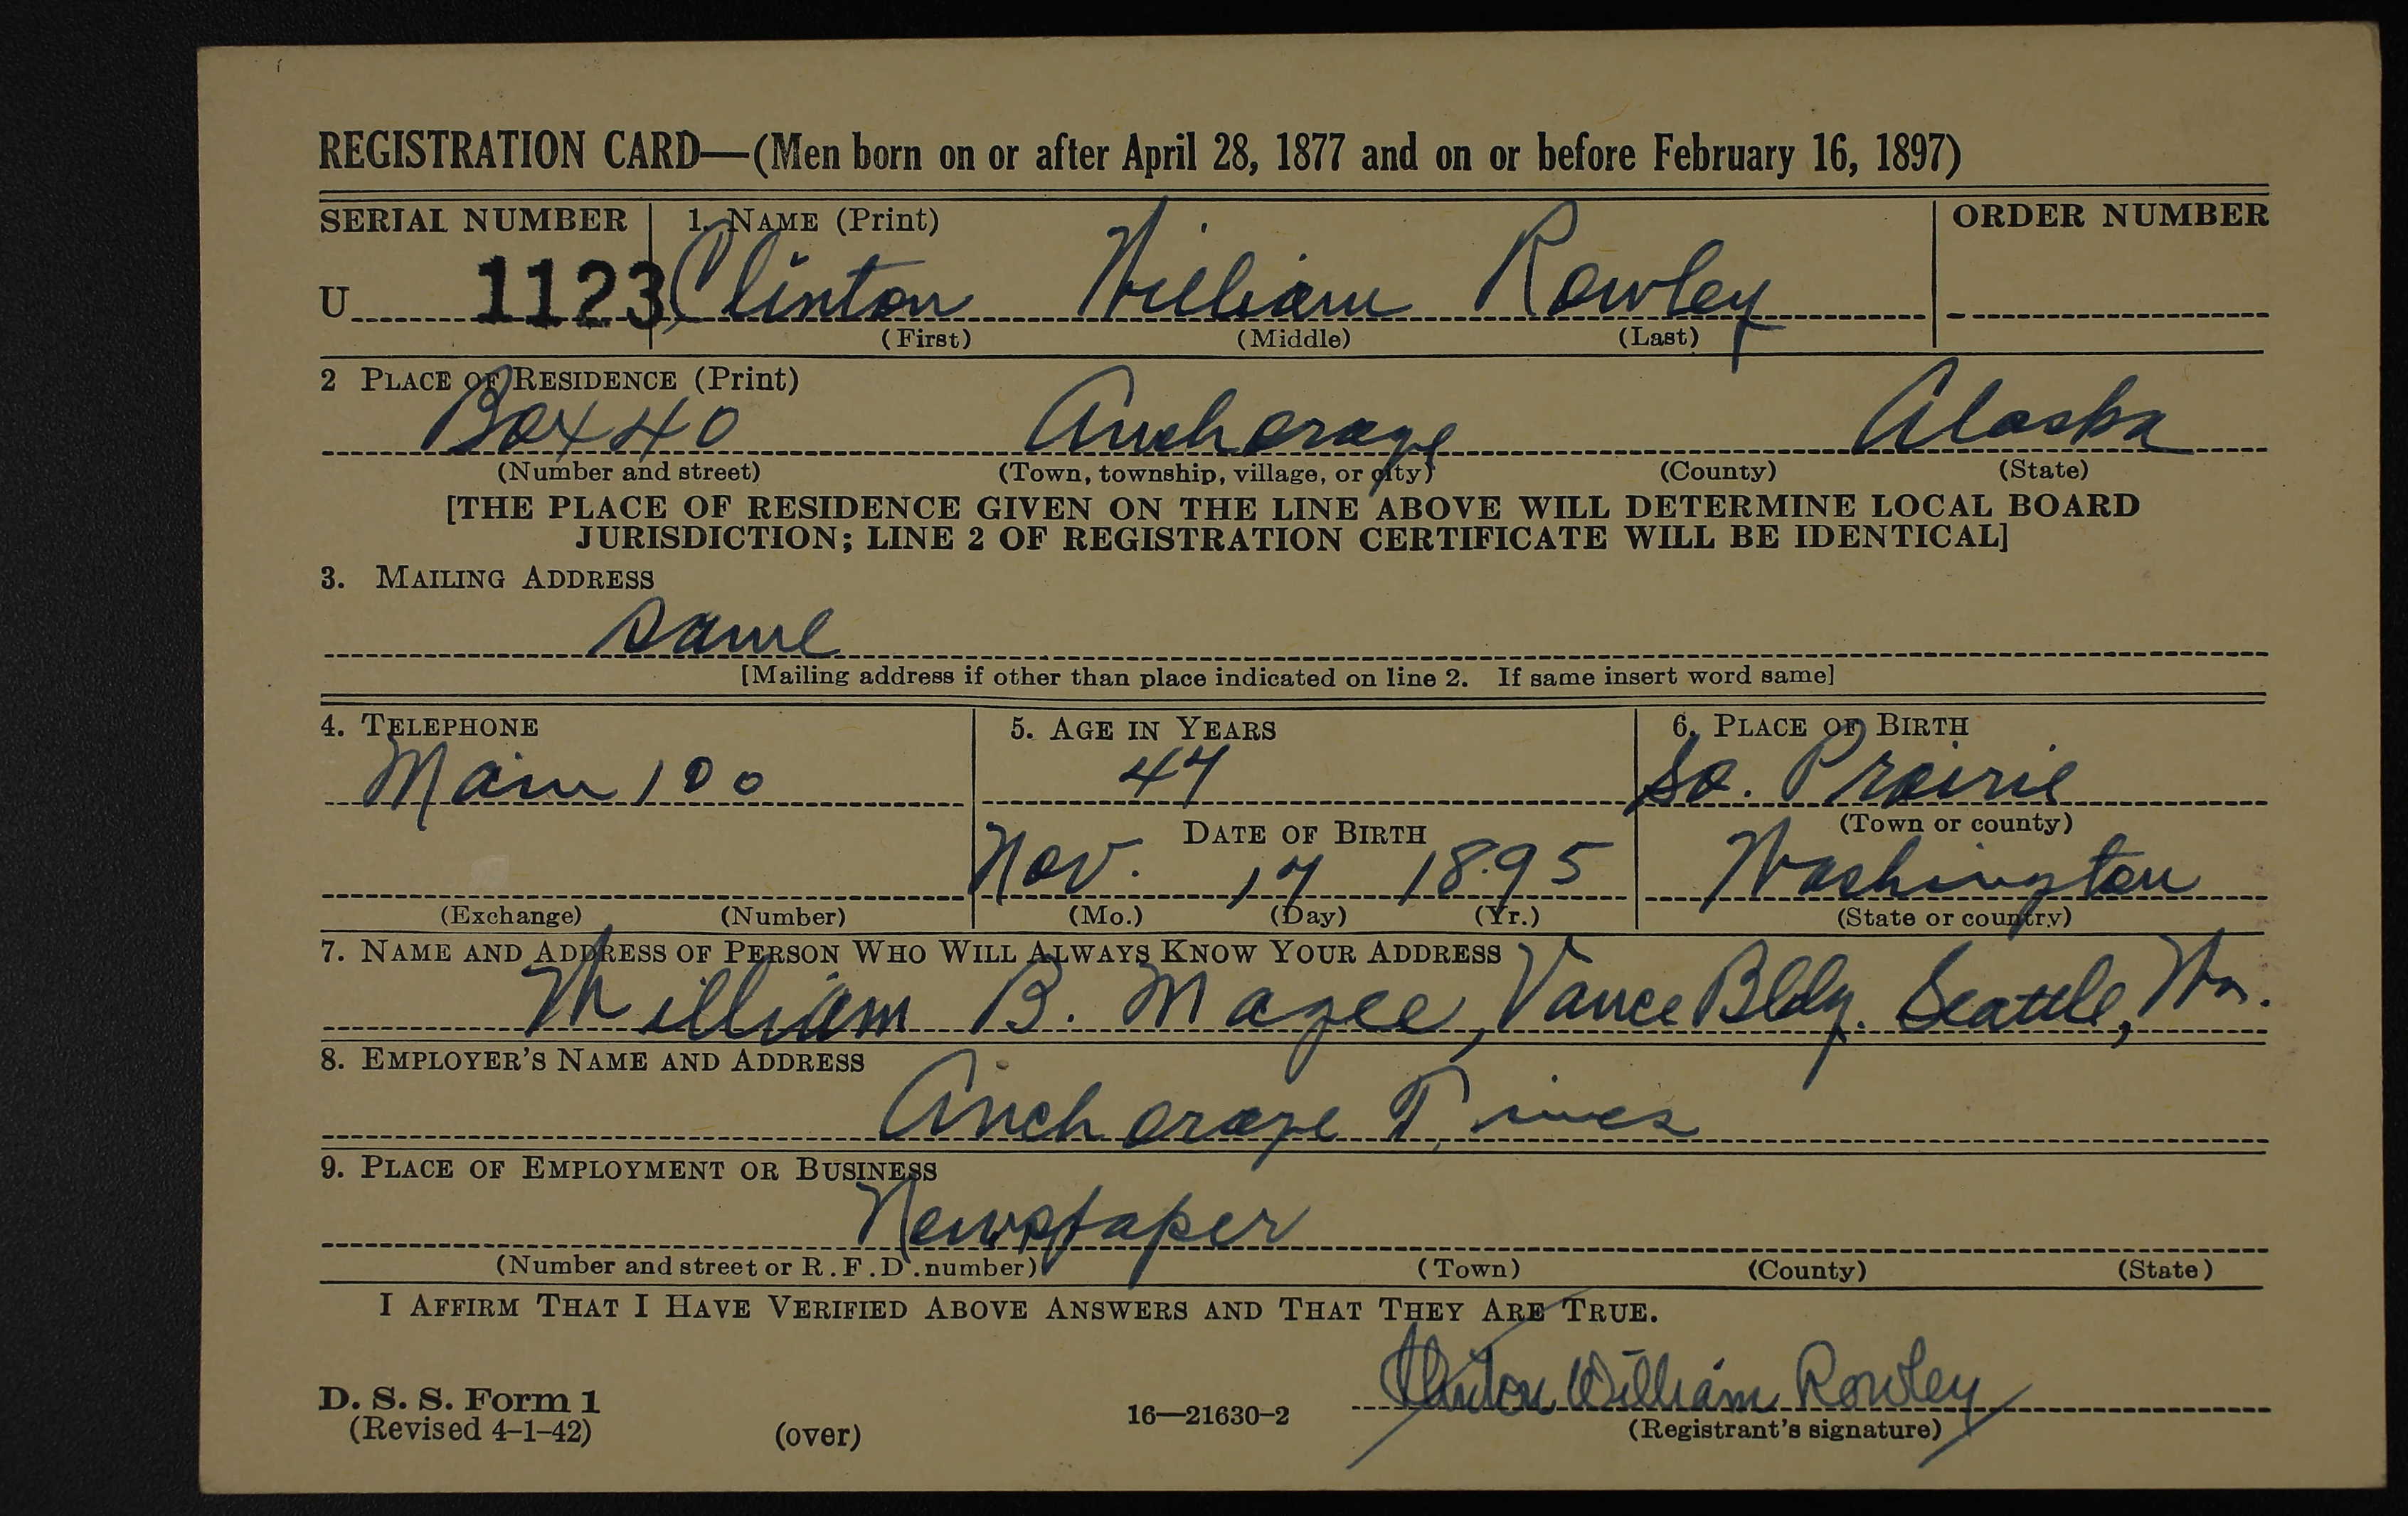 REGISTRATION CARD—(Men born on or after April 28, 1877 and on or before February 16, 1897)
SERIAL NUMBER 1. NAME (Print) ORDER NUMBER
U 1123 Clinton William Rowley
(First) (Middle) (Last)
2 PLACE OF RESIDENCE (Print)
Box 40 Anchorage Alaska
(Number and street) (Town, township, village, or city) (County) (State)
[THE PLACE OF RESIDENCE GIVEN ON THE LINE ABOVE WILL DETERMINE LOCAL BOARD
JURISDICTION; LINE 2 OF REGISTRATION CERTIFICATE WILL BE IDENTICAL]
3. MAILING ADDRESS
Same
[Mailing address if other than place indicated on line 2. If same insert word same]
4. TELEPHONE 5. AGE IN YEARS 6. PLACE OF BIRTH
Main 100 47 So. Prairie
DATE OF BIRTH (Town or county)
Nov. 17 1895 Washington
(Exchange) (Number) (Mo.) (Day) (Yr.) (State or country)
7. NAME AND ADDRESS OF PERSON WHO WILL ALWAYS KNOW YOUR ADDRESS
William B. Magee, Vance Bldg. Seattle, Wn.
8. EMPLOYER'S NAME AND ADDRESS
Anchorage Times
9. PLACE OF EMPLOYMENT OR BUSINESS
Newspaper
(Number and street or R.F.D. number) (Town) (County) (State)
I AFFIRM THAT I HAVE VERIFIED ABOVE ANSWERS AND THAT THEY ARE TRUE.
Clinton William Rowley
D. S. S. Form 1
(Revised 4-1-42) (over) 16—21630-2 (Registrant's signature)